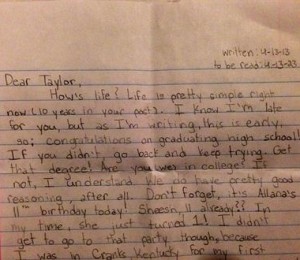 written: 4-13-13
to be read: 4-13-23
Dear Taylor,
How's life? Life is pretty simple right
now (10 years in your past). I know I'm late
for you, but as I'm writing, this is early,
so; congratulations on graduating high school!
If you didn't go back and keep trying. Get
that degree! Are you in college? If
not, I understand. We do have pretty good
reasoning, after all. Don't forget, it's Allana's
11th birthday today! Sheesh, 11 already?? In
my time, she just turned 1! I didn't
get to go to that party, though, because
I was in Kentucky for my first